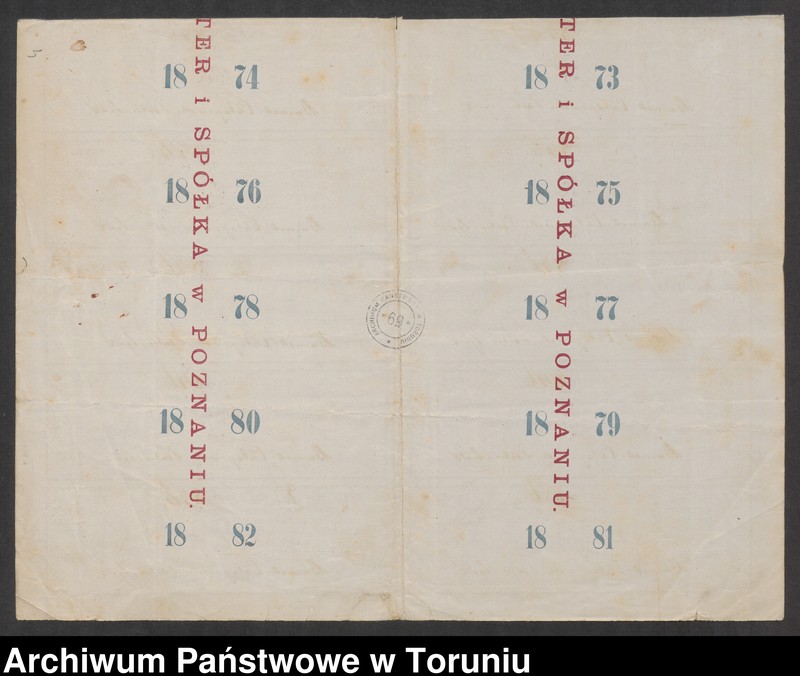 TER i SPÓŁKA w POZNANIU.
18 74
18 76
18 78
18 80
18 82
TER i SPÓŁKA w POZNANIU.
18 73
18 75
18 77
18 79
18 81
69
Archiwum Państwowe w Toruniu